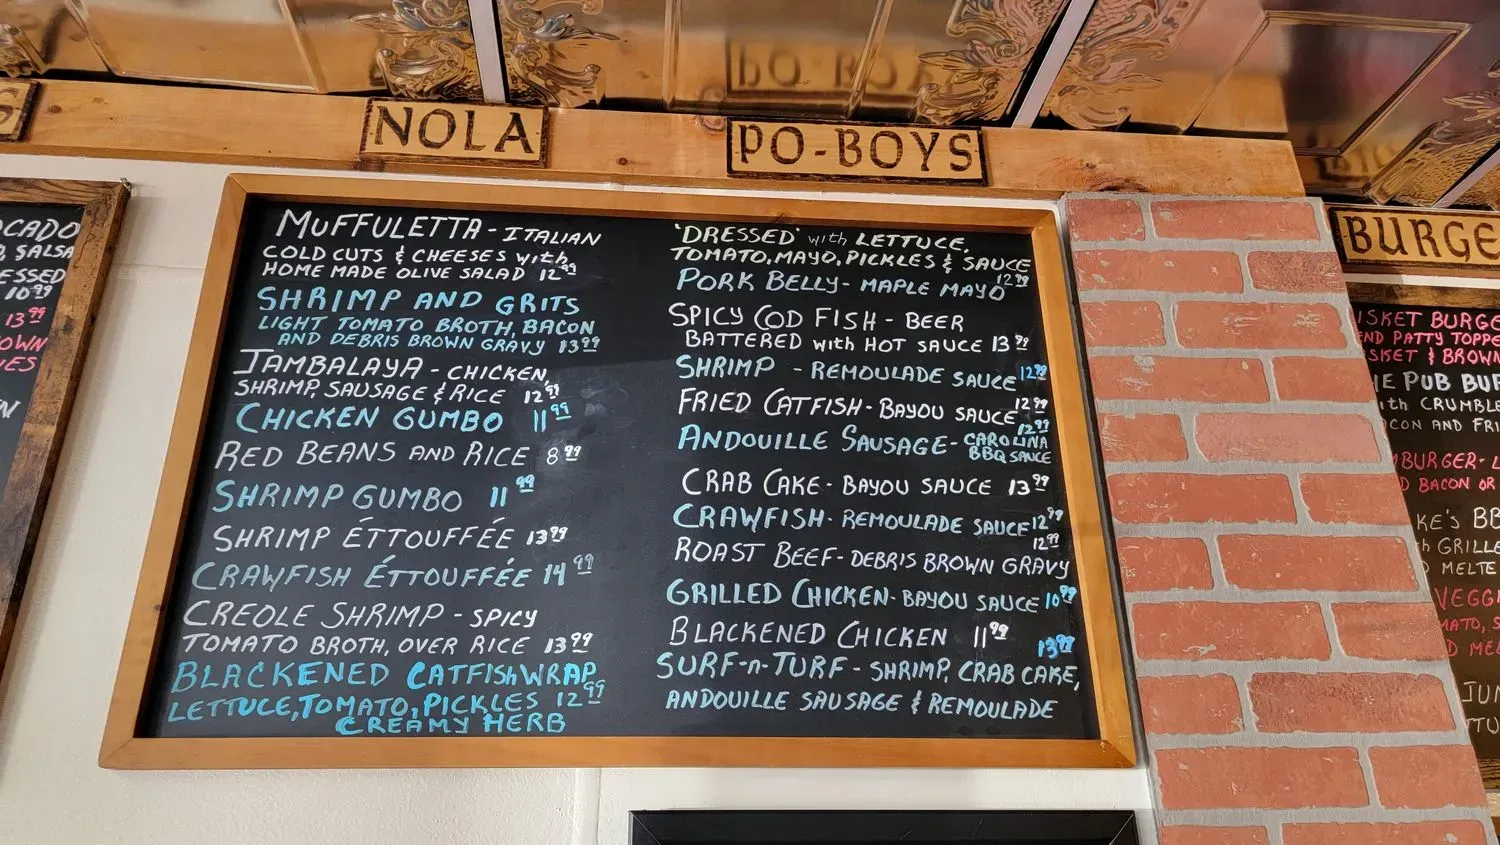 S
NOLA
PO-BOYS
BURGE
OCADO
SALSA
ESSED
10.99
13.99
OWN
IES
N
MUFFULETTA - ITALIAN
COLD CUTS & CHEESES with
HOME MADE OLIVE SALAD 12.99
SHRIMP AND GRITS
LIGHT TOMATO BROTH, BACON
AND DEBRIS BROWN GRAVY 13.99
JAMBALAYA - CHICKEN,
SHRIMP, SAUSAGE & RICE 12.99
CHICKEN GUMBO 11.99
RED BEANS AND RICE 8.99
SHRIMP GUMBO 11.99
SHRIMP ÉTTOUFFÉE 13.99
CRAWFISH ÉTTOUFFÉE 14.99
CREOLE SHRIMP - SPICY
TOMATO BROTH, OVER RICE 13.99
BLACKENED CATFISH WRAP
LETTUCE, TOMATO, PICKLES 12.99
CREAMY HERB
'DRESSED' with LETTUCE,
TOMATO, MAYO, PICKLES & SAUCE
PORK BELLY - MAPLE MAYO 12.99
SPICY COD FISH - BEER
BATTERED with HOT SAUCE 13.99
SHRIMP - REMOULADE SAUCE 12.99
FRIED CATFISH - BAYOU SAUCE 12.99
ANDOUILLE SAUSAGE - CAROLINA BBQ SAUCE 12.99
CRAB CAKE - BAYOU SAUCE 13.99
CRAWFISH - REMOULADE SAUCE 12.99
ROAST BEEF - DEBRIS BROWN GRAVY 12.99
GRILLED CHICKEN - BAYOU SAUCE 10.99
BLACKENED CHICKEN 11.99
SURF-n-TURF - SHRIMP, CRAB CAKE, 13.99
ANDOUILLE SAUSAGE & REMOULADE
ISKET BURGE
END PATTY TOPPE
SKET & BROWN
HE PUB BUR
ith CRUMBLE
CON AND FRI
BURGER - L
D BACON OR
KE'S BB
h GRILLE
D MELTE
VEGGI
MATO, S
D MEL
JUN
TTU